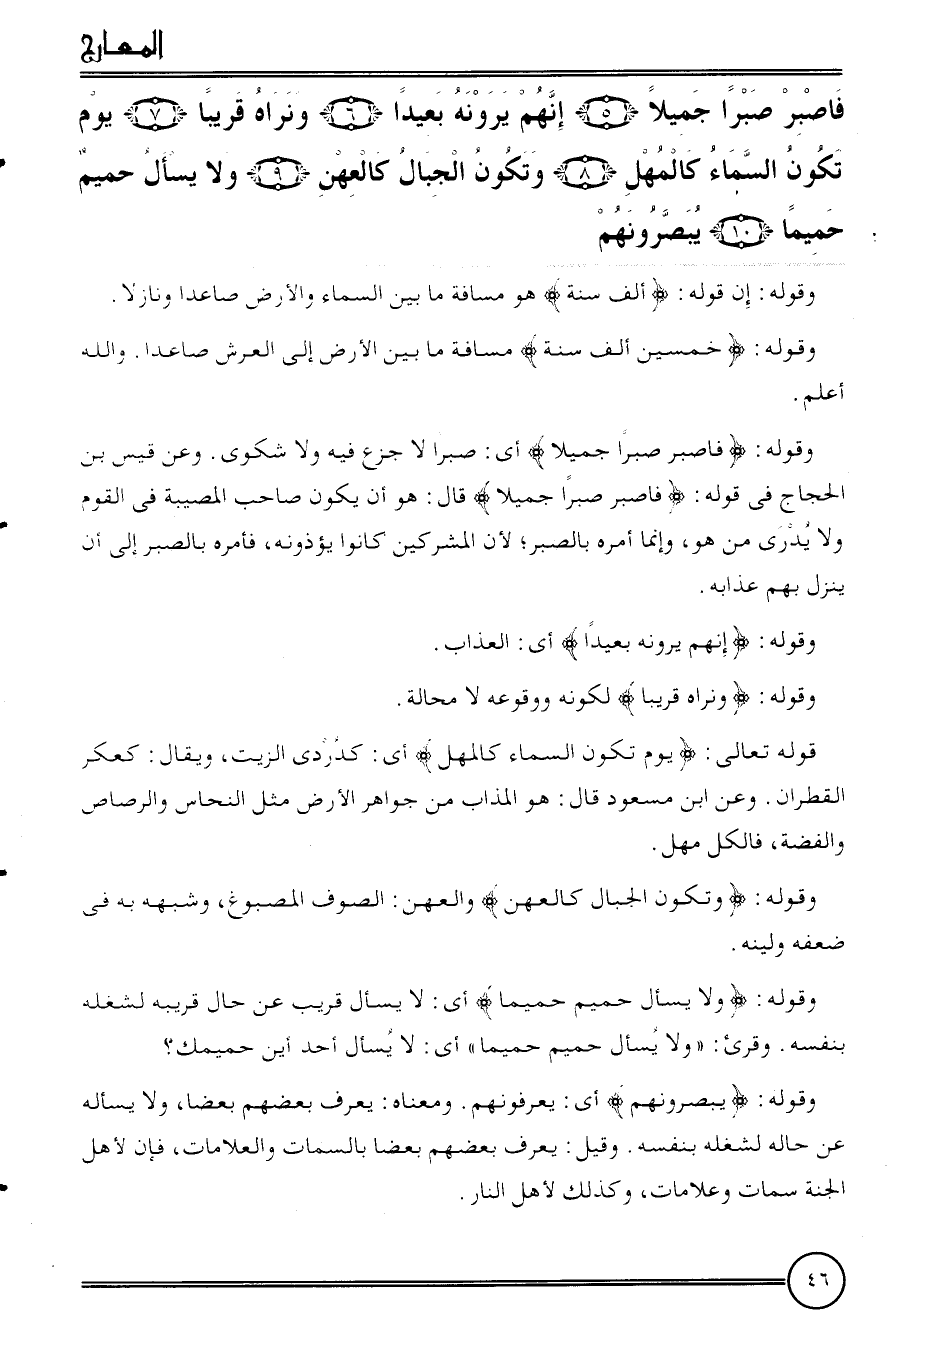 المعارج
فَاصْبِرْ صَبْرًا جَمِيلاً ﴿٥﴾ إِنَّهُمْ يَرَوْنَهُ بَعِيداً ﴿٦﴾ وَنَرَاهُ قَرِيبًا ﴿٧﴾ يَوْمَ
تَكُونُ السَّمَاءُ كَالْمُهْلِ ﴿٨﴾ وَتَكُونُ الْجِبَالُ كَالْعِهْنِ ﴿٩﴾ وَلا يَسْأَلُ حَمِيمٌ
حَمِيمًا ﴿١٠﴾ يُبَصَّرُونَهُمْ
وقوله: إن قوله: ﴿ألف سنة﴾ هو مسافة ما بين السماء والأرض صاعدا ونازلا.
وقوله: ﴿خمسين ألف سنة﴾ مسافة ما بين الأرض إلى العرش صاعدا. والله
أعلم.
وقوله: ﴿فاصبر صبرًا جميلا﴾ أى: صبرا لا جزع فيه ولا شكوى. وعن قيس بن
الحجاج فى قوله: ﴿فاصبر صبرًا جميلا﴾ قال: هو أن يكون صاحب المصيبة فى القوم
ولا يُدْرَى من هو، وإنما أمره بالصبر؛ لأن المشركين كانوا يؤذونه، فأمره بالصبر إلى أن
ينزل بهم عذابه.
وقوله: ﴿إنهم يرونه بعيدًا﴾ أى: العذاب.
وقوله: ﴿ونراه قريبا﴾ لكونه ووقوعه لا محالة.
قوله تعالى: ﴿يوم تكون السماء كالمهل﴾ أى: كدُرْدى الزيت، ويقال: كعكر
القطران. وعن ابن مسعود قال: هو المذاب من جواهر الأرض مثل النحاس والرصاص
والفضة، فالكل مهل.
وقوله: ﴿وتكون الجبال كالعهن﴾ والعهن: الصوف المصبوغ، وشبهه به فى
ضعفه ولينه.
وقوله: ﴿ولا يسأل حميم حميما﴾ أى: لا يسأل قريب عن حال قريبه لشغله
بنفسه. وقرئ: «ولا يُسأل حميم حميما» أى: لا يُسأل أحد أين حميمك؟
وقوله: ﴿يبصرونهم﴾ أى: يعرفونهم. ومعناه: يعرف بعضهم بعضا، ولا يسأله
عن حاله لشغله بنفسه. وقيل: يعرف بعضهم بعضا بالسمات والعلامات، فإن لأهل
الجنة سمات وعلامات، وكذلك لأهل النار.
٤٦